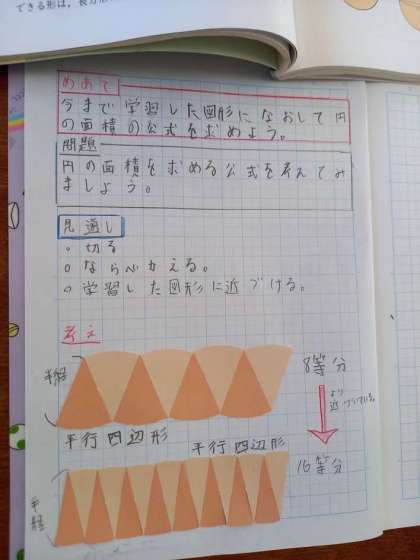 できる形は、長方形
めあて
今まで学習した図形になおして円
の面積の公式を求めよう。
問題
円の面積を求める公式を考えてみ
ましょう。
見通し
○切る
○ならべかえる。
○学習した図形に近づける。
考え
半径
8等分
より
近づいている。
平行四辺形
平行四辺形
16等分
半径